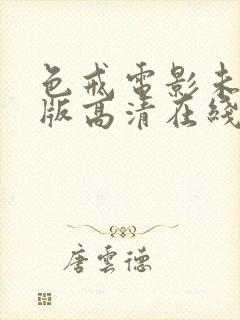 色戒電影未
版高清在綫
唐雲德